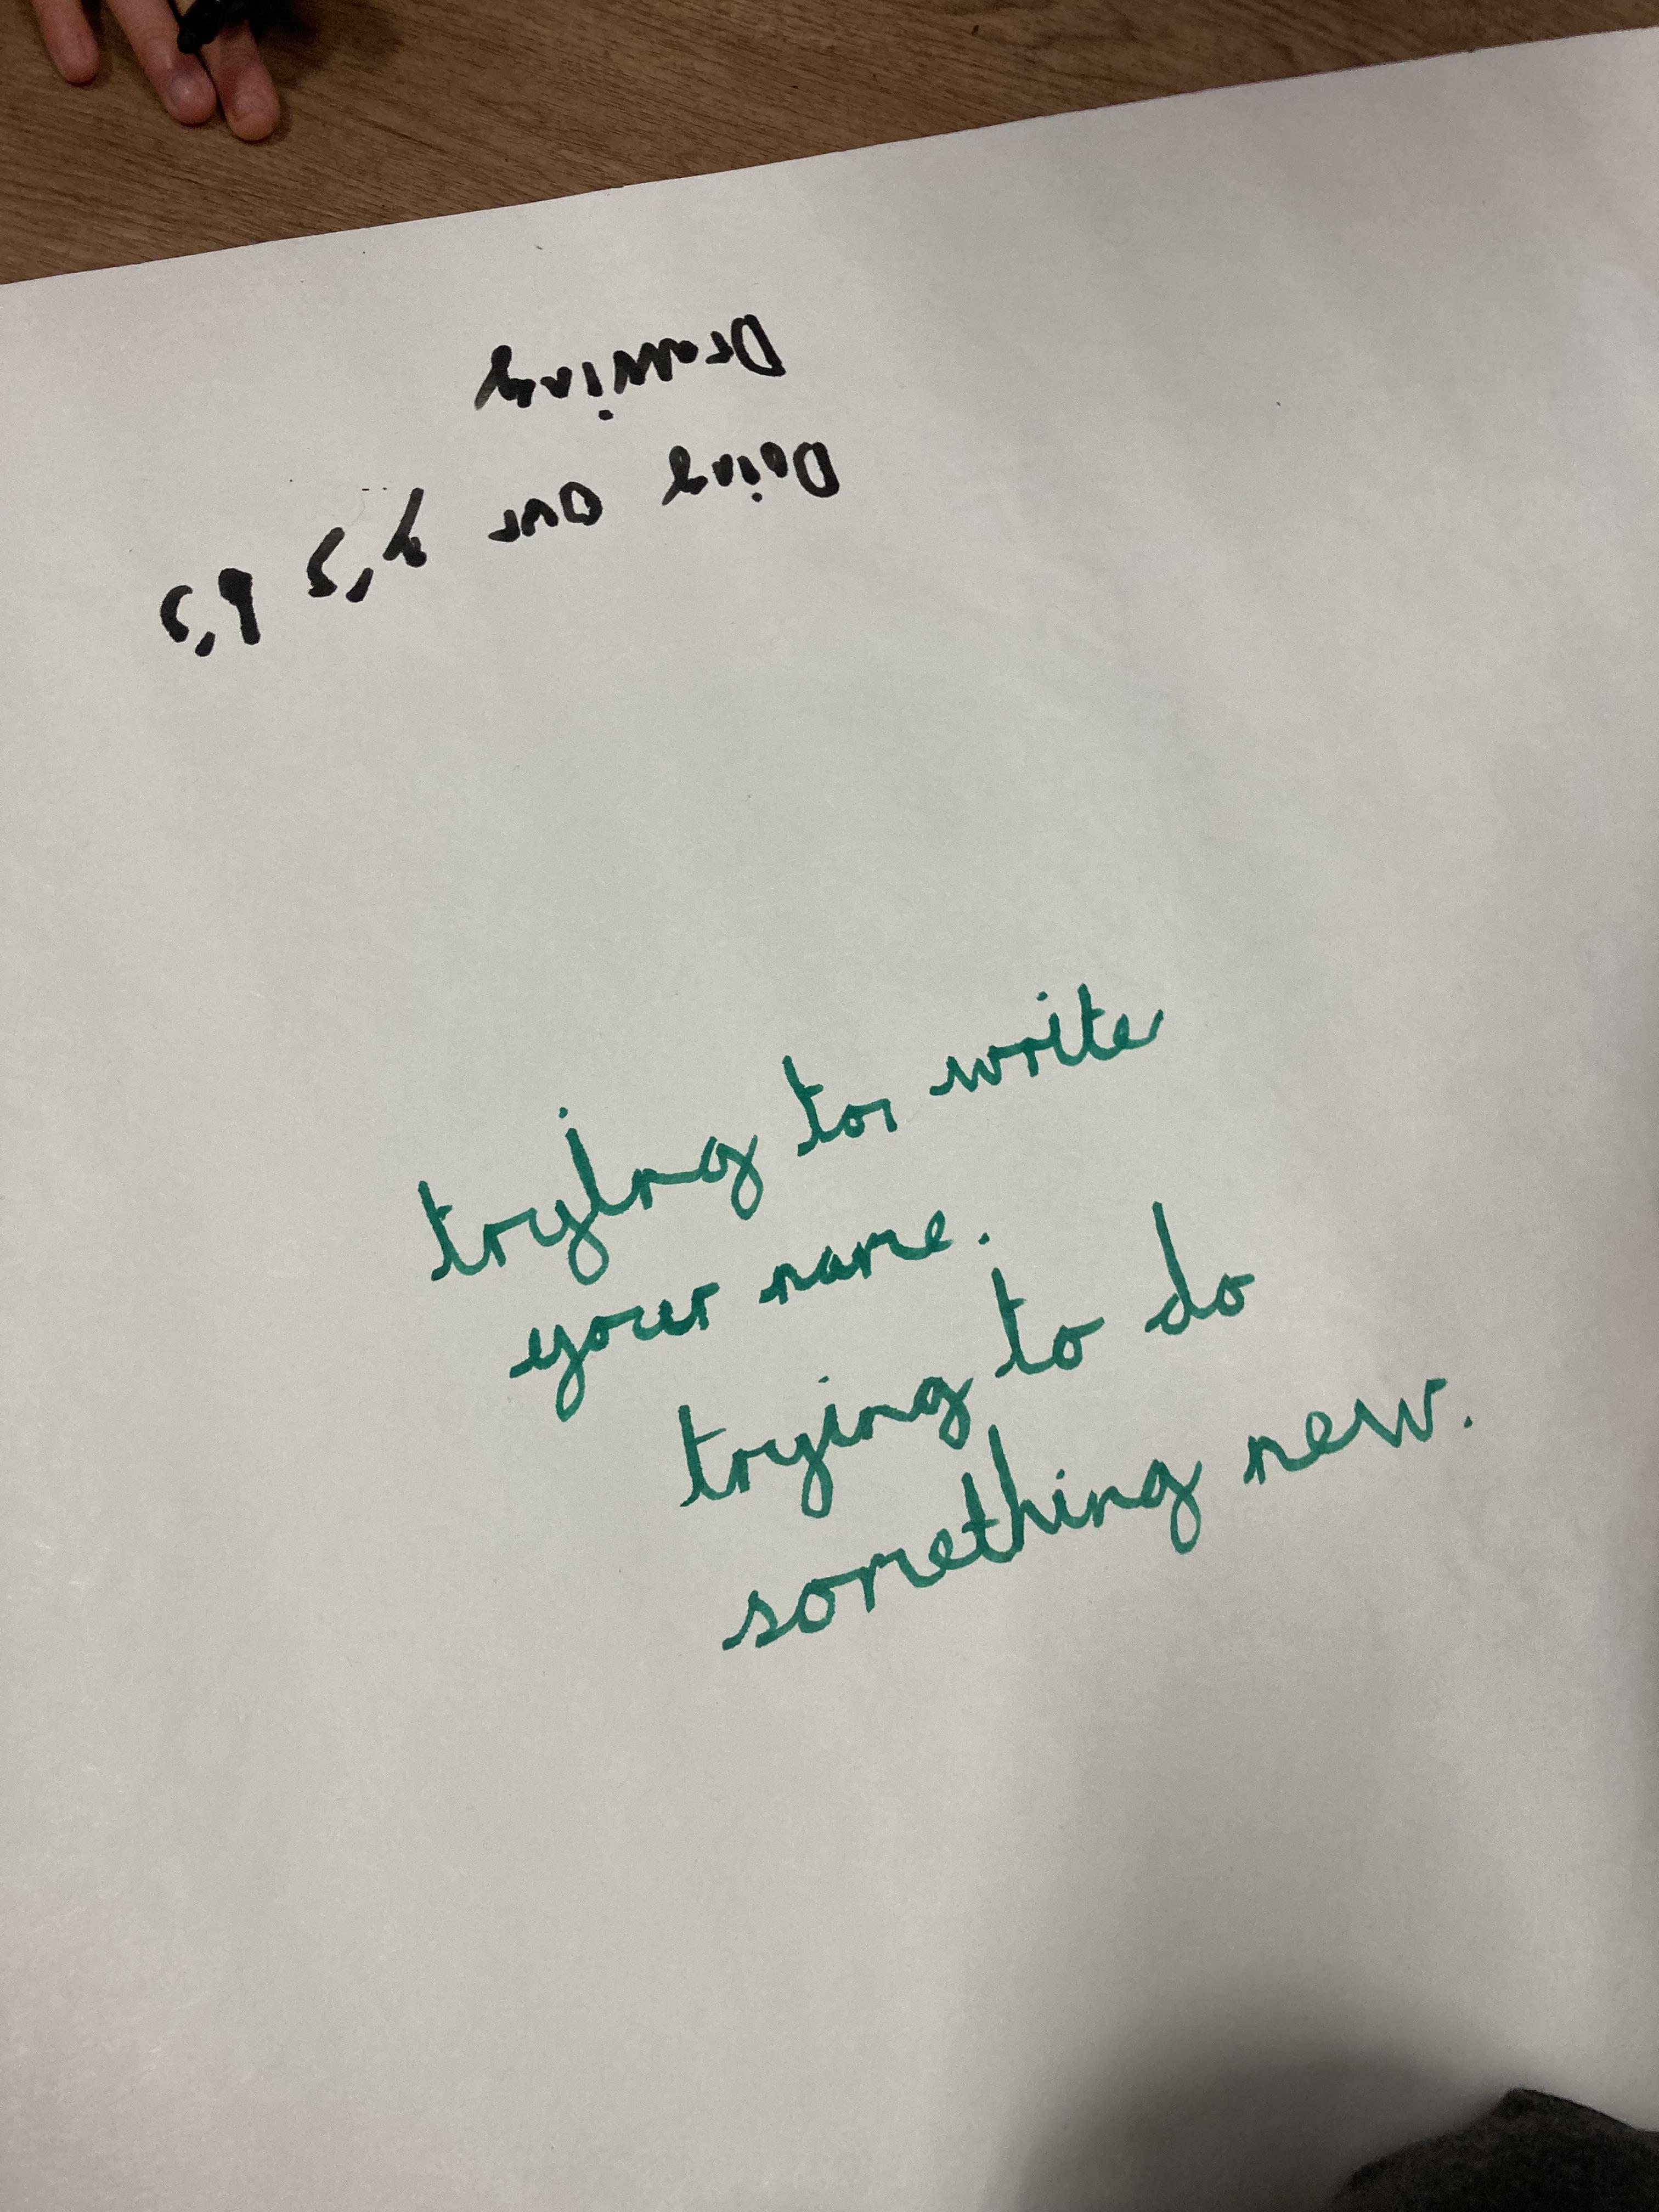 trying to write
your name.
trying to do
something new.
Doing our y's b's
Drawing